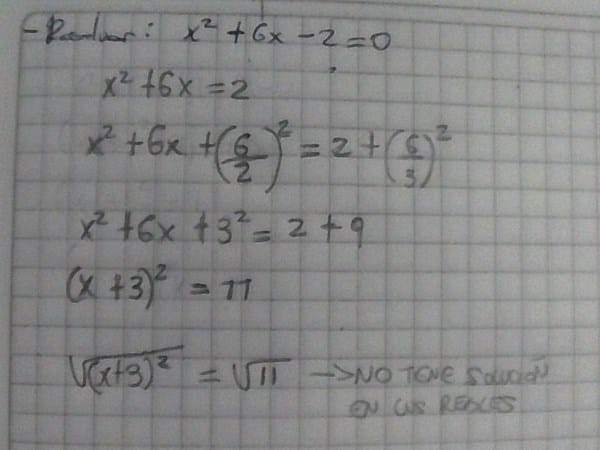 - Resolver: x² + 6x - 2 = 0
x² + 6x = 2
x² + 6x + (6/2)² = 2 + (6/3)²
x² + 6x + 3² = 2 + 9
(x + 3)² = 11
√(x+3)² = √11 -> NO TIENE SOLUCIÓN
EN LOS REALES